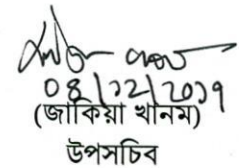 08/12/2019
(জাকিয়া খানম)
উপসচিব